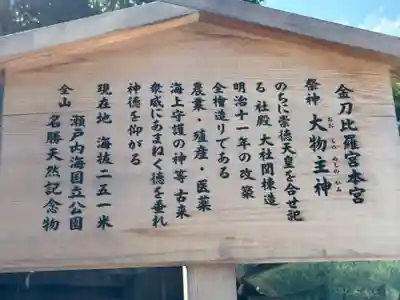 金刀比羅宮本宮
祭神 大物主神
おおものぬしのかみ
のちに崇徳天皇を合せ祀
る 社殿 大社関棟造
明治十一年の改築
全檜造りである
農業・殖産・医薬
海上守護の神等 古来
衆威にあまねく徳を垂れ
神徳を仰がる
現在地 海抜二五一米
瀬戸内海国立公園
全山 名勝天然記念物